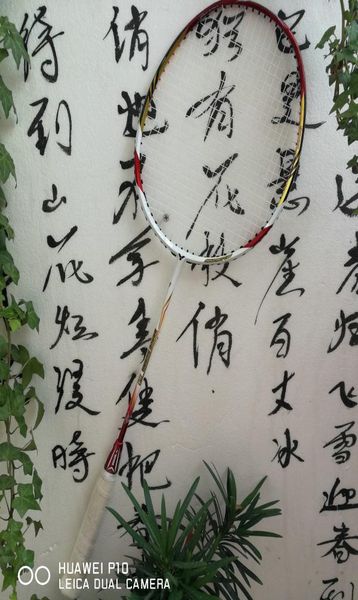 春归飞雪迎春到
已是悬崖百丈冰
犹有花枝俏
俏也不争春只把春
待到山花烂漫时
HUAWEI P10
LEICA DUAL CAMERA